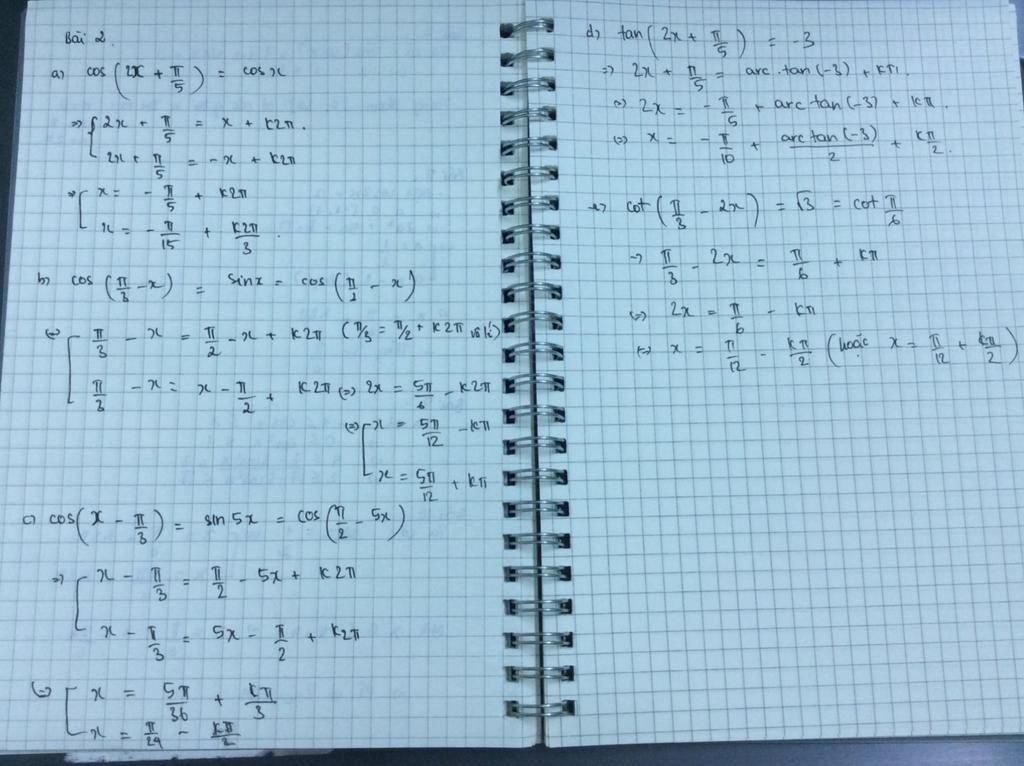 Bài 2.
a) cos(2x + π/5) = cos x
=> { 2x + π/5 = x + k2π.
2x + π/5 = -x + k2π
=> [ x = -π/5 + k2π
x = -π/15 + k2π/3.
b) cos(π/3 - x) = sin x = cos(π/2 - x)
(=) [ π/3 - x = π/2 - x + k2π (π/3 = π/2 + k2π vô lí)
π/3 - x = x - π/2 + k2π (=) 2x = 5π/6 - k2π
(=) [ x = 5π/12 - kπ
x = 5π/12 + kπ
c) cos(x - π/3) = sin 5x = cos(π/2 - 5x)
=> [ x - π/3 = π/2 - 5x + k2π
x - π/3 = 5x - π/2 + k2π
(=) [ x = 5π/36 + kπ/3
x = π/24 - kπ/2
d) tan(2x + π/5) = -3
=> 2x + π/5 = arc.tan(-3) + kπ.
(=) 2x = -π/5 + arc tan(-3) + kπ.
(=) x = -π/10 + arc tan(-3)/2 + kπ/2.
e) cot(π/3 - 2x) = √3 = cot π/6
=> π/3 - 2x = π/6 + kπ
(=) 2x = π/6 - kπ
(=) x = π/12 - kπ/2 (hoặc x = π/12 + kπ/2)